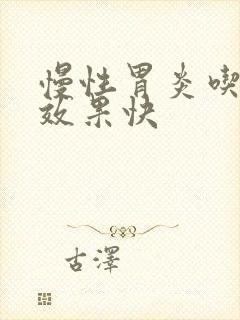 慢性胃炎喫
效果快
古澤